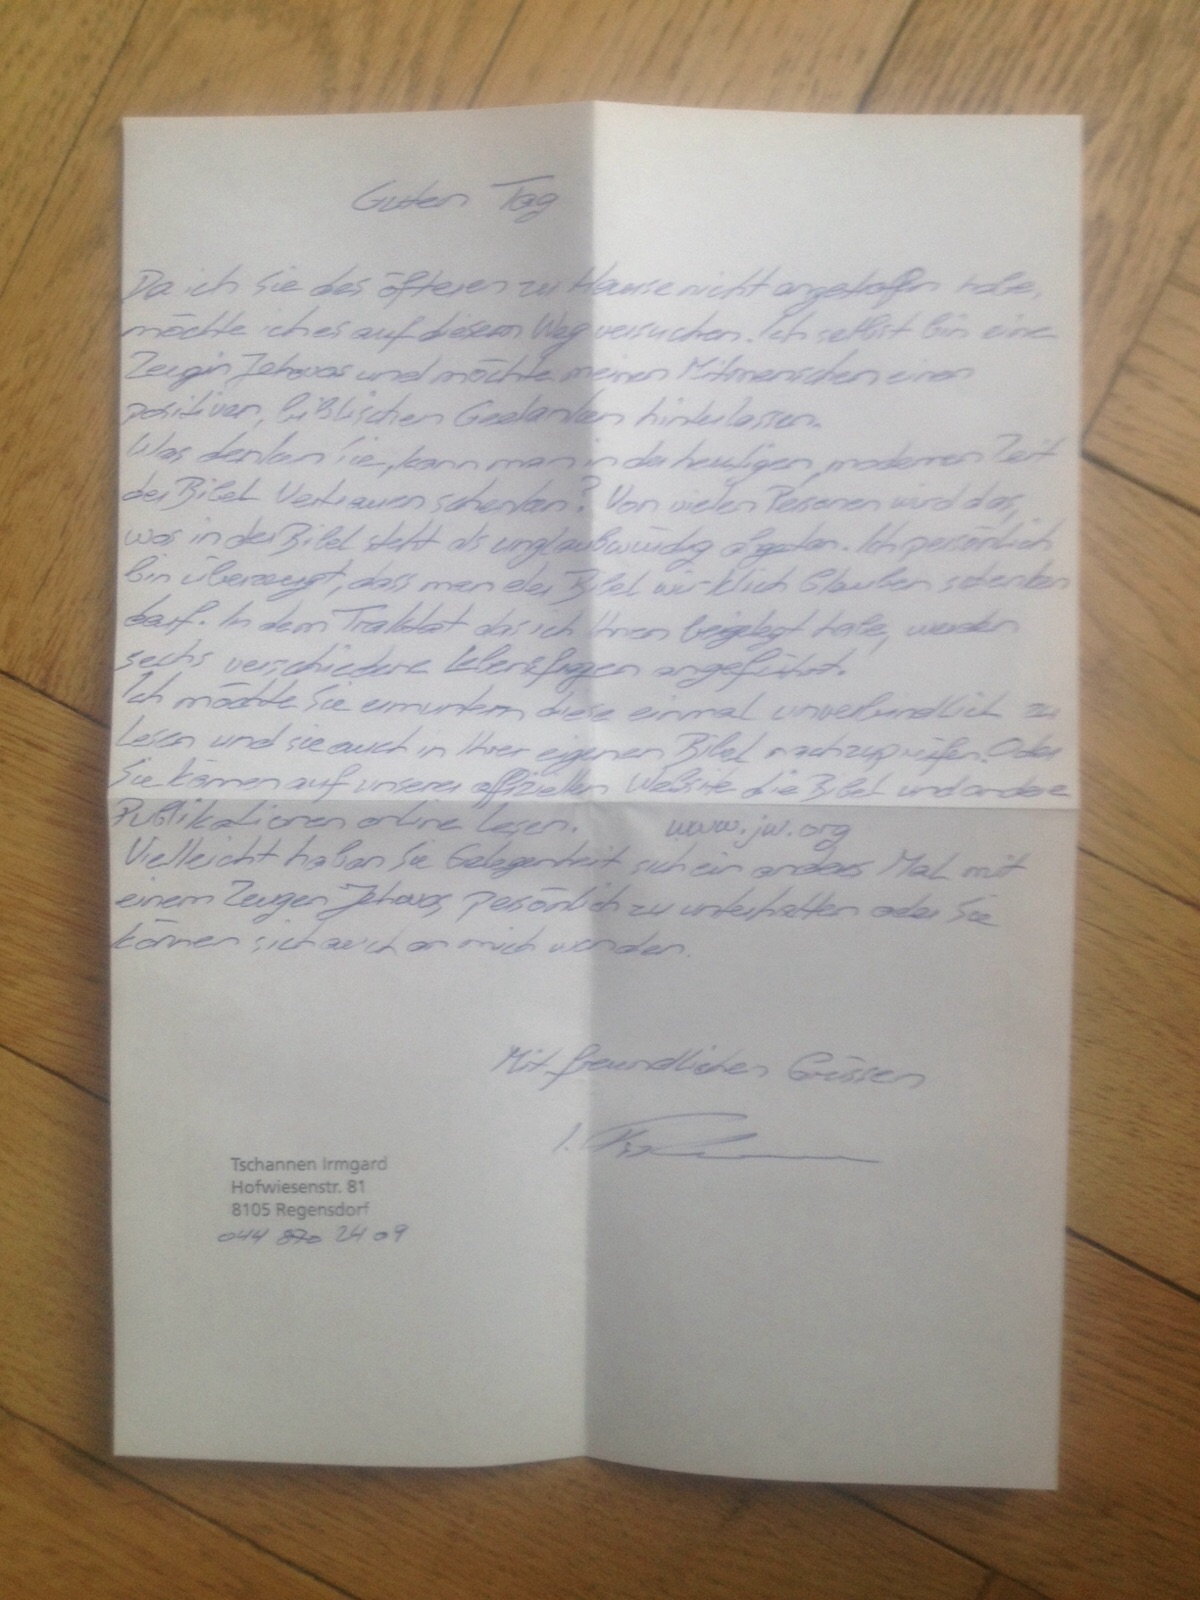 Guten Tag
Da ich Sie des öfteren zu Hause nicht angetroffen habe,
möchte ich es auf diesem Weg versuchen. Ich selbst bin eine
Zeugin Jehovas und möchte meinen Mitmenschen einen
positiven, biblischen Gedanken hinterlassen.
Was denken Sie, kann man in der heutigen, modernen Zeit
der Bibel Vertrauen schenken? Von vielen Personen wird das,
was in der Bibel steht als unglaubwürdig abgetan. Ich persönlich
bin überzeugt, dass man der Bibel wirklich Glauben schenken
darf. In dem Traktat das ich Ihnen beigelegt habe, werden
sechs verschiedene Lebensfragen angeführt.
Ich möchte Sie ermuntern diese einmal unverbindlich zu
lesen und sie auch in Ihrer eigenen Bibel nachzuprüfen. Oder
Sie können auf unserer offiziellen Website die Bibel und andere
Publikationen online lesen. www.jw.org
Vielleicht haben Sie Gelegenheit sich ein anderes Mal mit
einem Zeugen Jehovas, persönlich zu unterhalten oder Sie
können sich auch an mich wenden.
Mit freundlichen Grüssen
I.
Tschannen Irmgard
Hofwiesenstr. 81
8105 Regensdorf
044 870 24 09